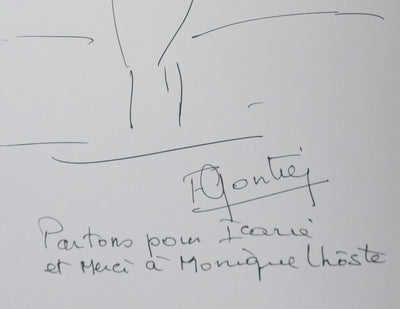 Partons pour Icarie
et Merci à Monique Lhôste